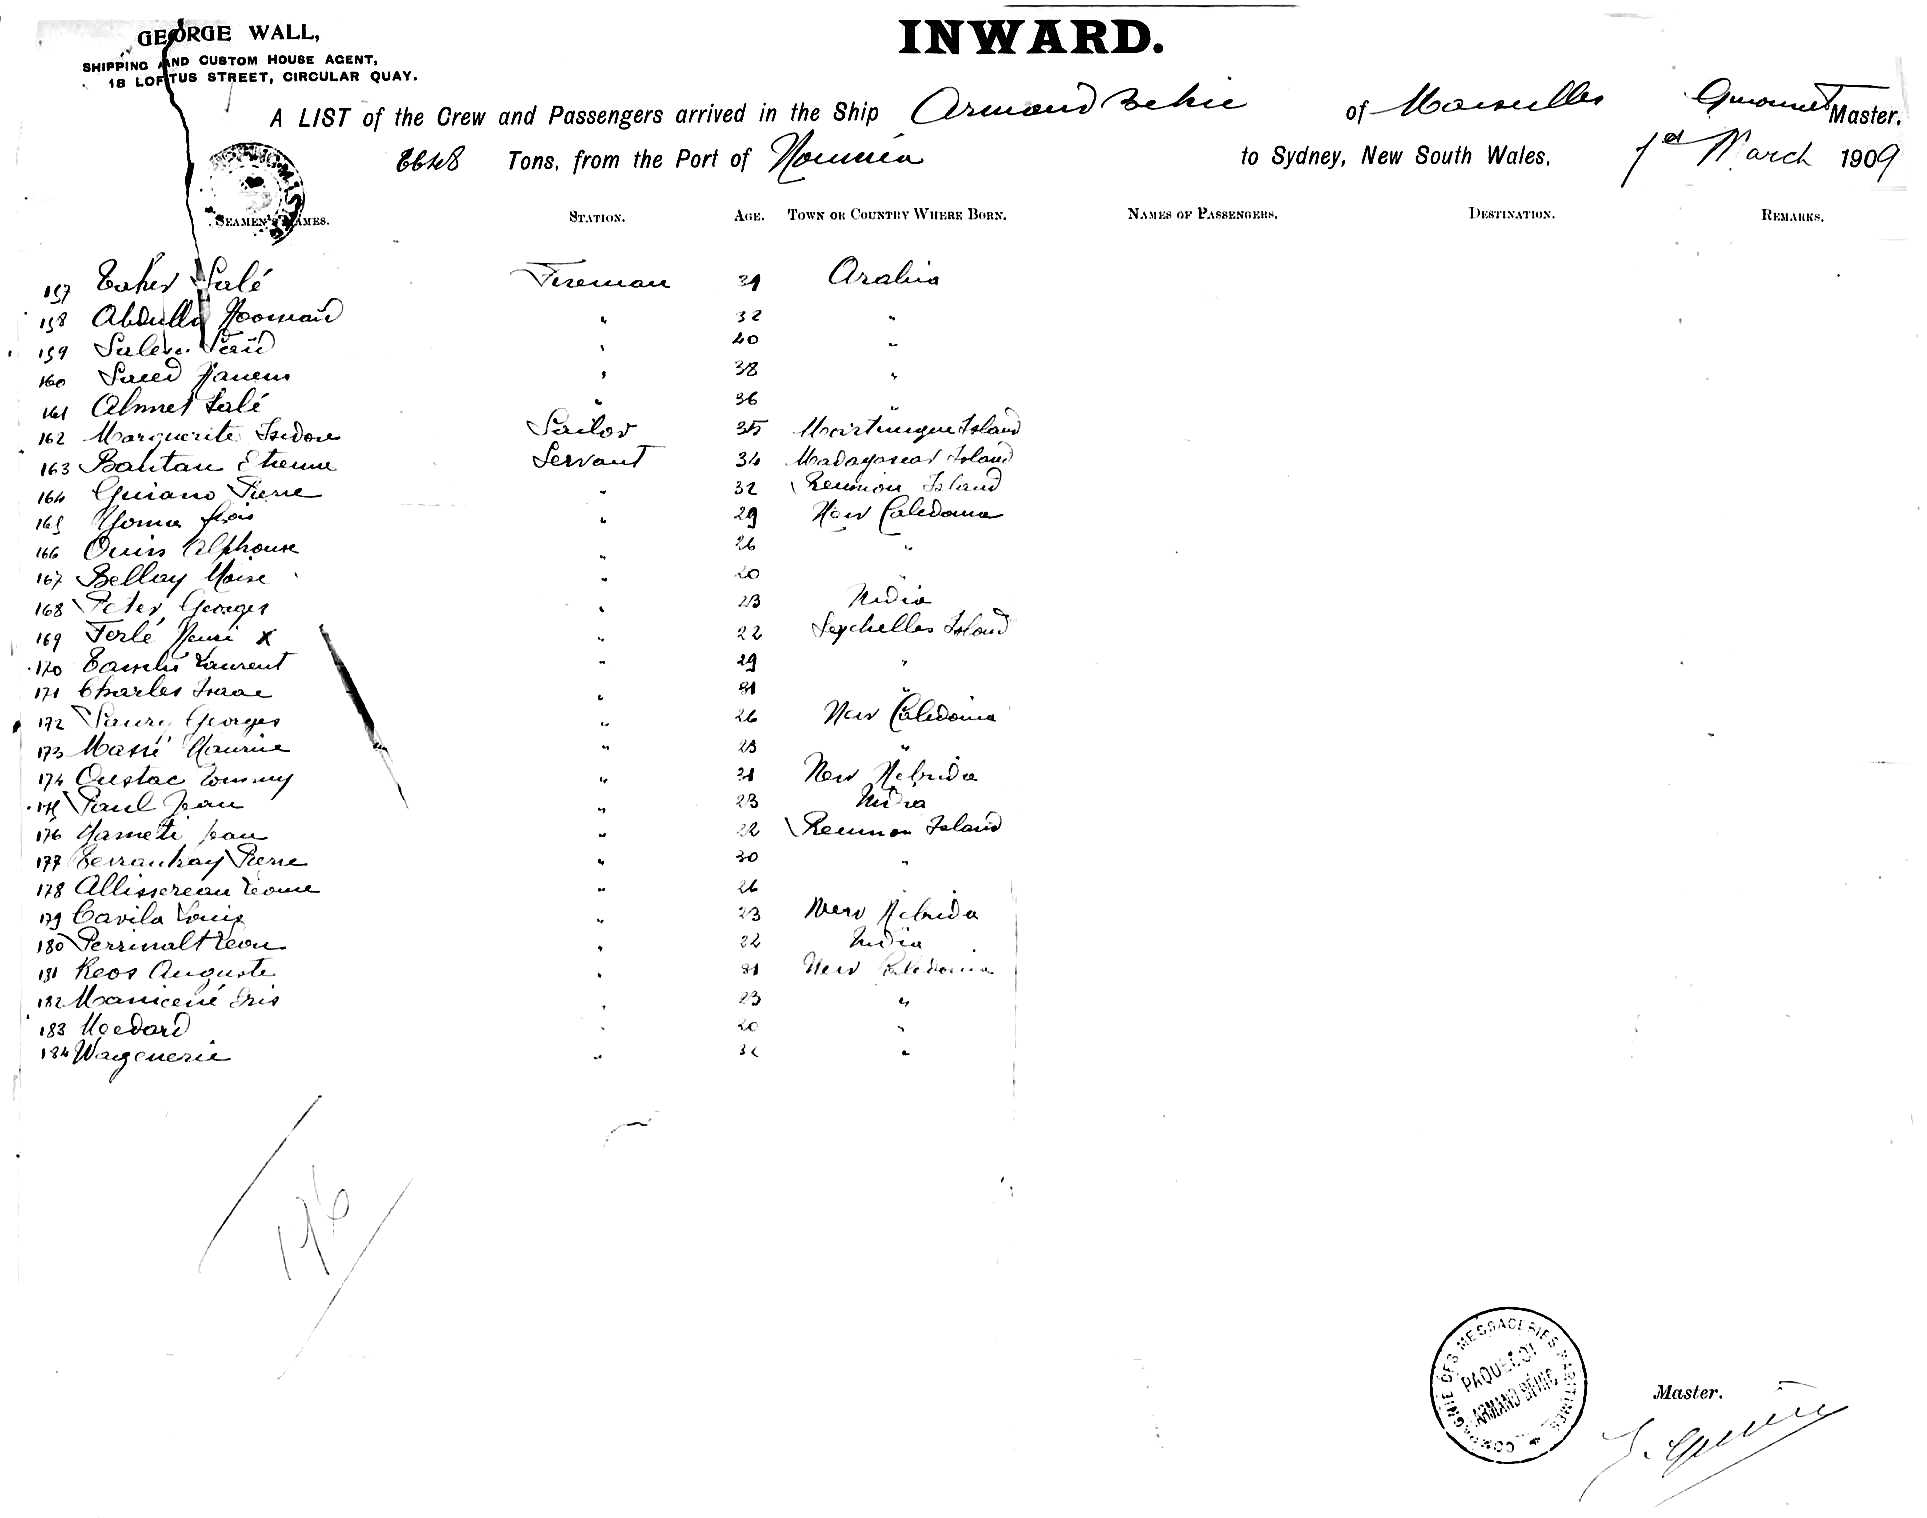 GEORGE WALL,
SHIPPING AND CUSTOM HOUSE AGENT,
18 LOFTUS STREET, CIRCULAR QUAY.
INWARD.
A LIST of the Crew and Passengers arrived in the Ship Armand Behic of Marseilles Master.
6648 Tons, from the Port of Noumea to Sydney, New South Wales, 1st March 1909
SEAMEN'S NAMES. STATION. AGE. TOWN OR COUNTRY WHERE BORN. NAMES OF PASSENGERS. DESTINATION. REMARKS.
157 Taher Salé Fireman 39 Arabia
158 Abdulla Nooman " 32 "
159 Salem Said " 40 "
160 Saeed Hanem " 38 "
161 Ahmet Salé " 36 "
162 Marguerite Isidore Sailor 35 Martinique Island
163 Bahtan Etienne Servant 34 Madagascar Island
164 Pierre " 32 Reunion Island
165 " 29 New Caledonia
166 Alphonse " 26 "
167 Bellay Moise " 20 "
168 Peter Georges " 23 India
169 Ferlé Henri x " 22 Seychelles Island
170 Laurent " 29 "
171 Charles Isaac " 31 "
172 Saury Georges " 26 New Caledonia
173 Massé Maurice " 23 "
174 Oustac Tommy " 31 New Hebrida
175 Paul Jean " 23 India
176 Jean " 22 Reunion Island
177 Pierre " 30 "
178 " 26 "
179 Cavila Louis " 23 New Hebrida
180 Perrinalt Léon " 22 India
181 Keos Auguste " 31 New Caledonia
182 Iris " 23 "
183 Medard " 20 "
184 Wagenerie " "
196
COMPAGNIE DES MESSAGERIES MARITIMES
PAQUEBOT
ARMAND BÉHIC
Master.